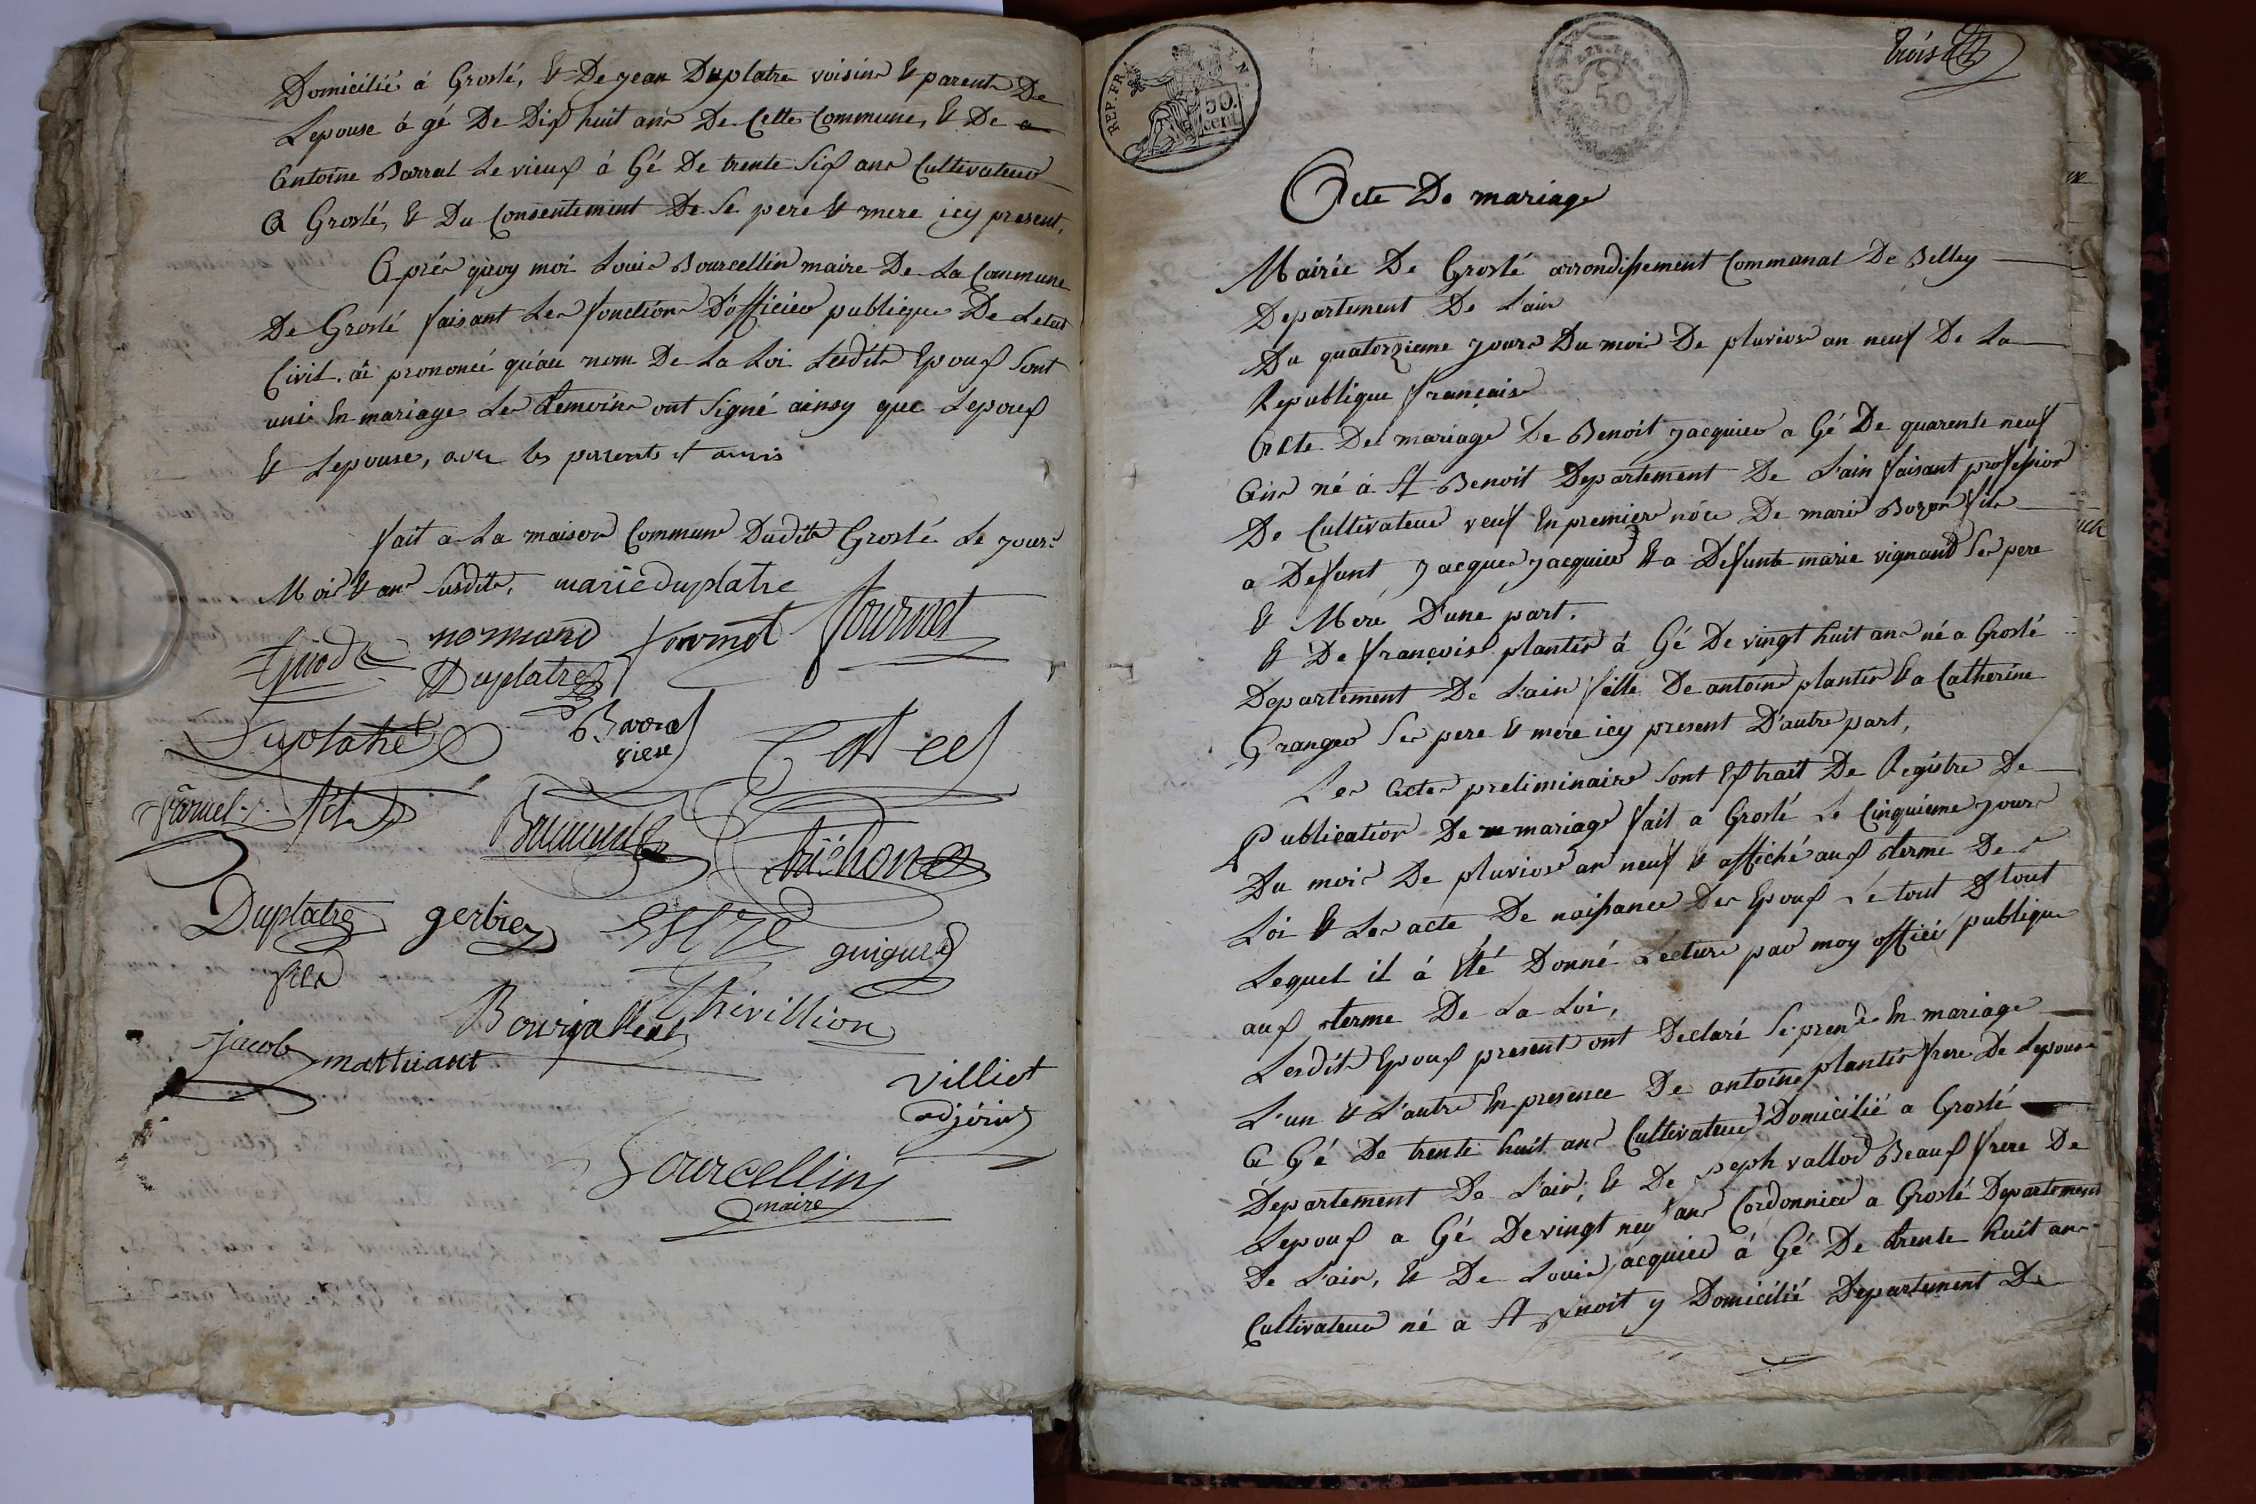 Domicilié á Groslé, & De jean Duplatre voisins & parents De
Lepouse á gé De Dix huit ans De Cette Commune, & De
antoine Barral Le vieux á Gé De trente Six ans Cultivateur
a Groslé, & Du Consentement De Se pere & mere icy present,
Aprés quoy moi Louis Bourcellin maire De La Commune
De Groslé faisant Les fonctions D'officier publique De Letat
Civil. ai prononcé qu'au nom De La Loi Lesdits Epoux Sont
unis En mariage Les temoins ont Signé ainsy que Lepoux
& Lepouse, avec les parents et amis
fait a La maison Commune Dudit Groslé Le jours
Mois & ans Susdits, marie duplatre
normand fournet fournet
Duplatre
Duplatre Barral
vieux
Duplatre gerbier guigue
fils
Bourjaillat Thivillion
jacob matthiant
Villiot
adjoint
Bourcellin
maire
REP. FRA
50.
cent.
50
trois
Acte De mariage
Mairie De Groslé arrondissement Communal De Belley
Departement De L'ain
Du quatorzieme jours Du mois De pluviose an neuf De La
Republique française
Acte De mariage De Benoit jacquier a Gé De quarente neuf
Ans né á St Benoit Departement De L'ain faisant profession
De Cultivateur veuf En premier nôce De marie Bozon fils
a Defunt jacques jacquier & a Defunte marie vignand Ses pere
& Mere D'une part.
& De françoise plantin á Gé De vingt huit ans né a Groslé
Departement De L'ain fille De antoine plantin & a Catherine
Granger Ses pere & mere icy present D'autre part,
Les Actes preliminaire Sont Extrait De Registre De
Publication De mariage fait a Groslé Le Cinquieme jours
Du mois De pluviose an neuf & affiché aux terme De
Loi & Les acte De naissance Des Epoux Le tout D tout
Lequel il á Eté Donné Lecture par moy officié publique
aux terme De La Loi,
Lesdits Epoux present ont Declaré Se prendre En mariage
L'un & L'autre En presence De antoine plantin frere De Lepouse
a Gé De trente huit ans Cultivateur Domicilié a Groslé
Departement De L'ain, & De joseph vallod Beaux frere De
Lepoux a Gé De vingt neuf ans Cordonnier a Groslé Departement
De L'ain, & De Louis jacquier á Gé De trente huit ans
Cultivateur né a St Benoit y Domicilié Departement De